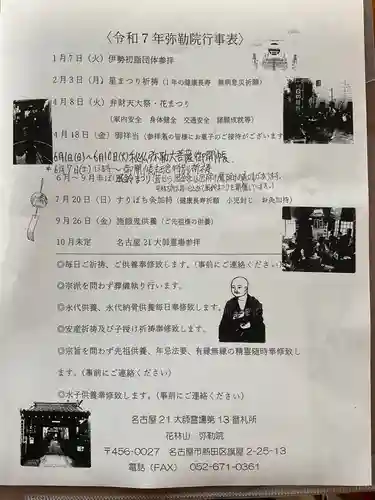 〈令和７年弥勒院行事表〉
１月７日（火）伊勢初詣団体参拝
２月３日（月）星まつり祈祷（１年の健康長寿　無病息災祈願）
４月８日（火）弁財天大祭・花まつり
（家内安全　身体健全　交通安全　諸願成就等）
４月１８日（金）御祥当（参拝者の皆様にお菓子のご接待がございます
６月～９月末は風鈴まつり
７月２０日（日）すりばち灸加持（健康長寿祈願　小児封じ　お灸加持）
９月２６日（金）施餓鬼供養（ご先祖様の供養）
１０月未定　名古屋２１大師霊場参拝
◎毎日ご祈祷、ご供養奉修致します。（事前にご連絡ください）
◎宗派を問わず葬儀執り行います。
◎永代供養、永代納骨供養毎日奉修致します。
◎安産祈祷及び子授け祈祷奉修致します。
◎宗旨を問わず先祖供養、年忌法要、有縁無縁の精霊随時奉修致し
ます。（事前にご連絡ください）
◎水子供養奉修致します。（事前にご連絡ください）
名古屋２１大師霊場第１３番札所
花林山　弥勒院
〒456-0027　名古屋市熱田区旗屋 2-25-13
電話（FAX）　052-671-0361